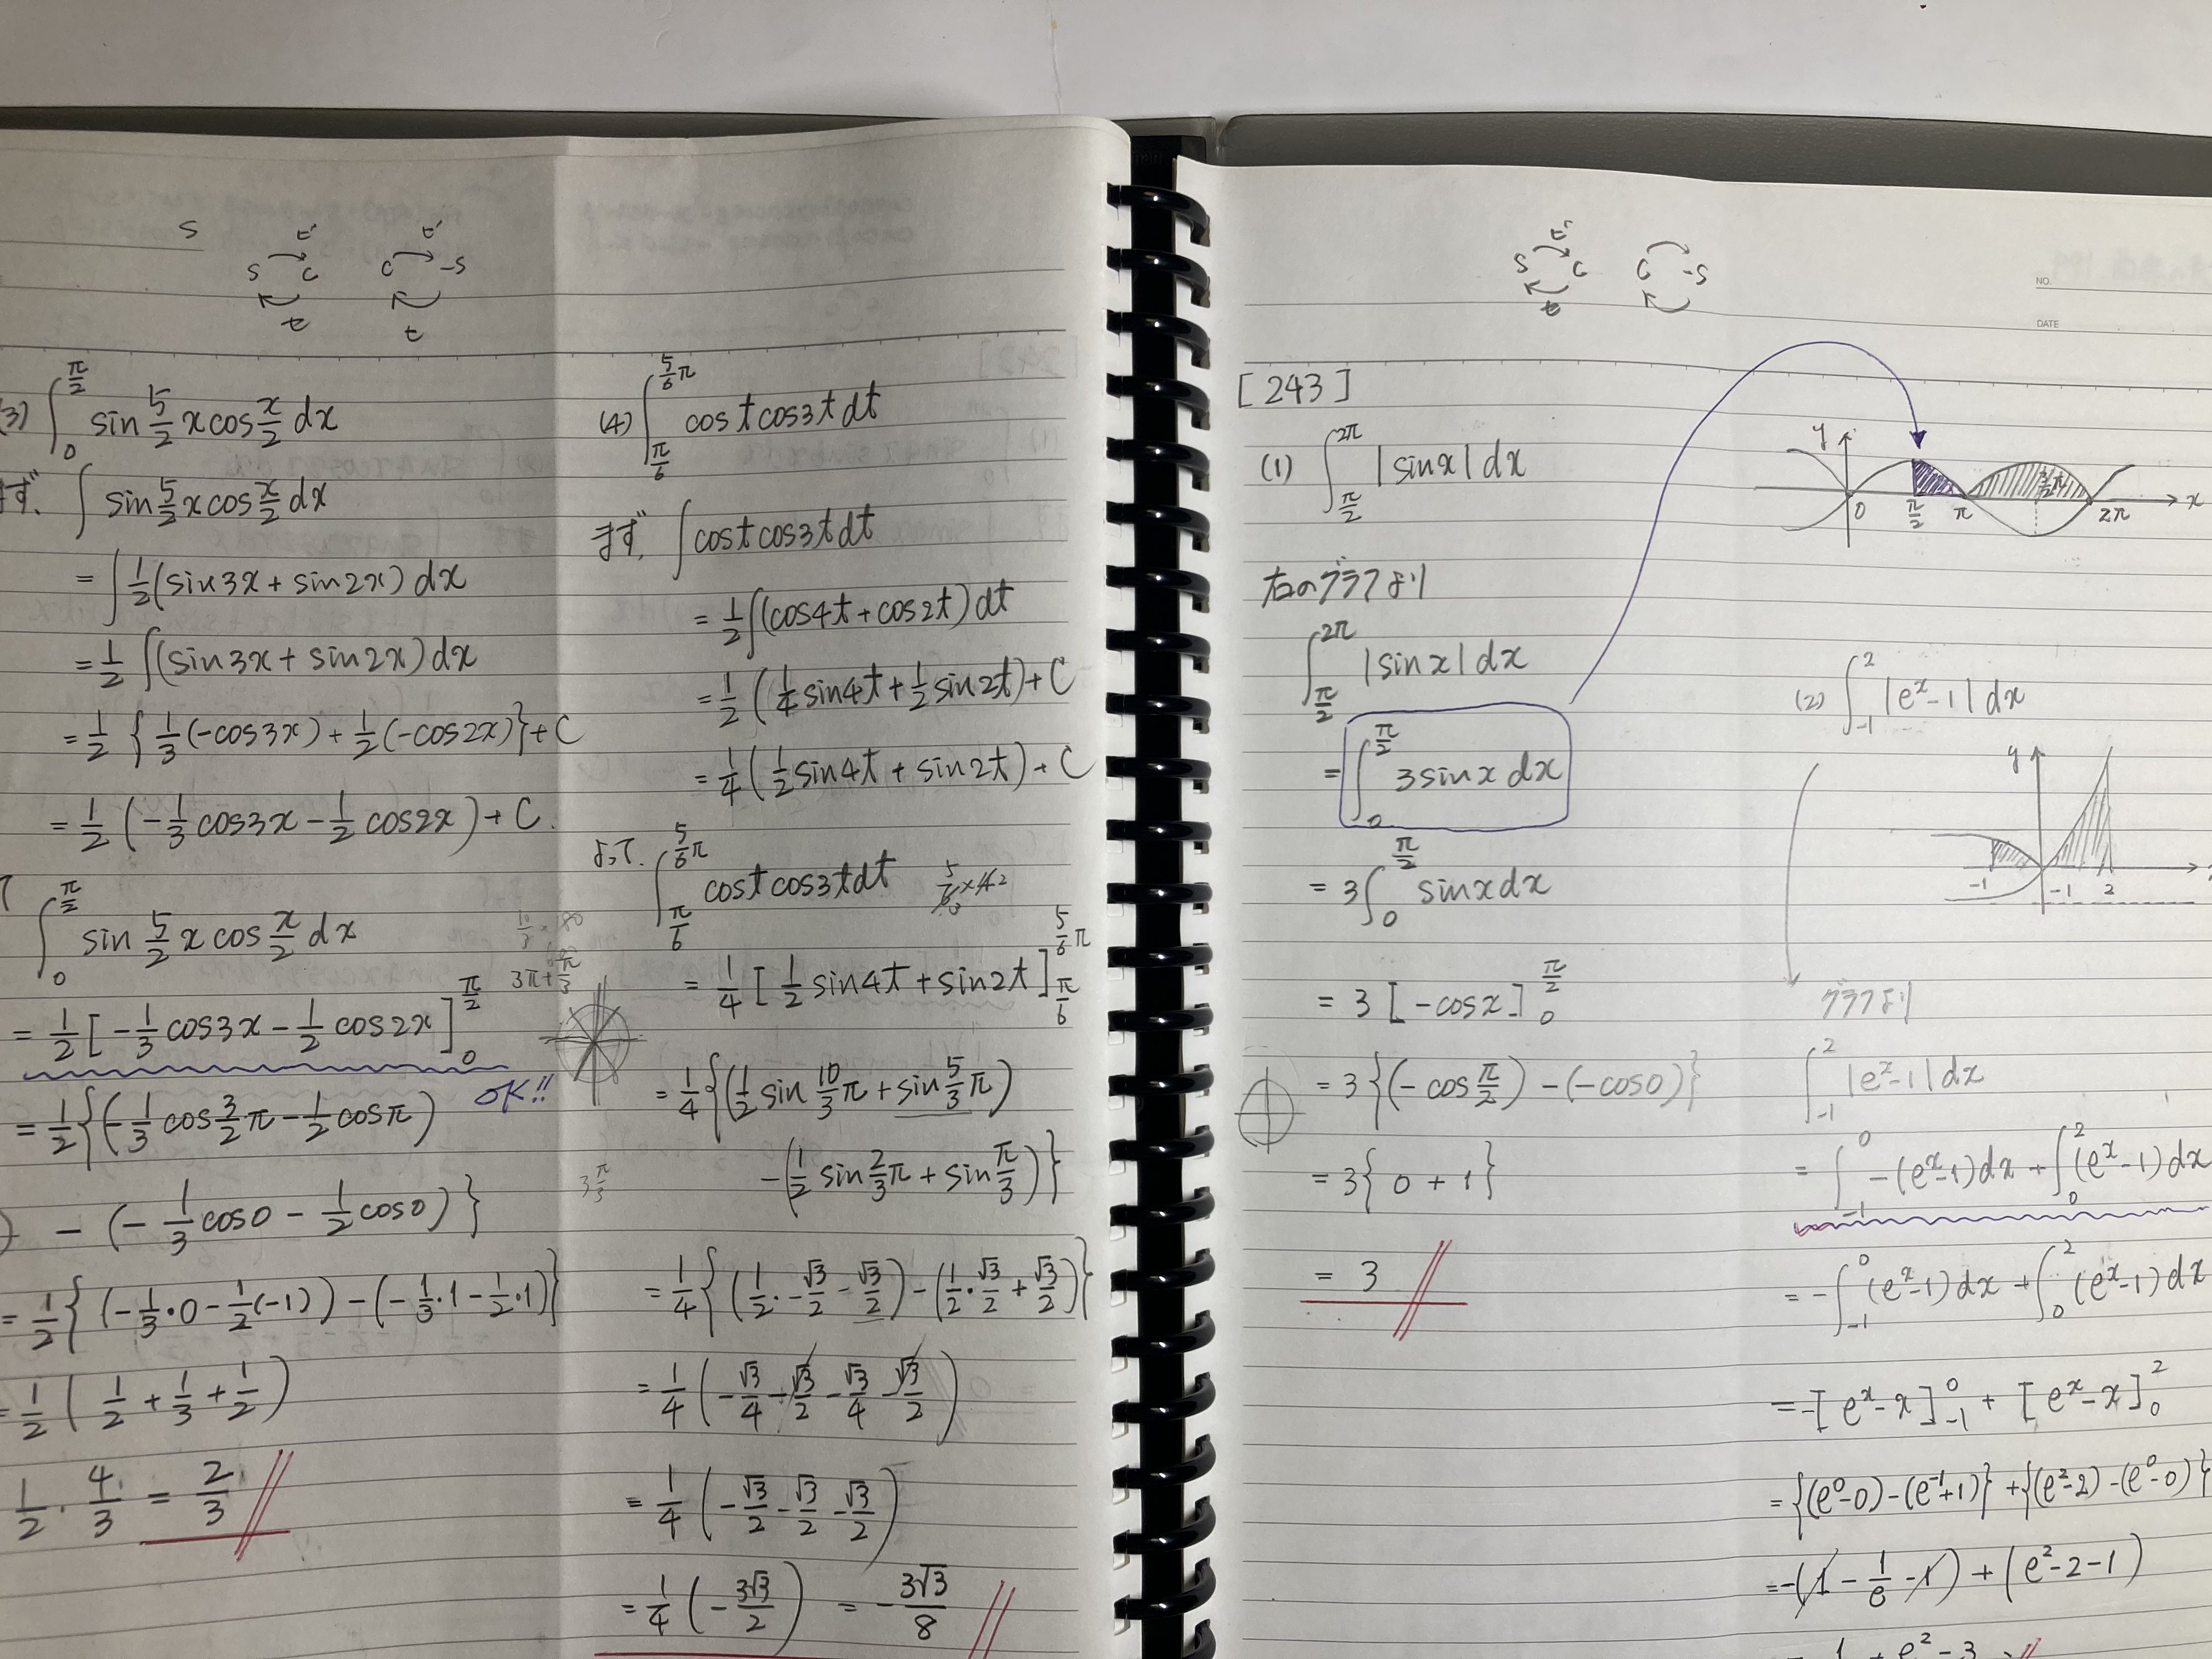 S
S C t' t
C -S t' t
(3) ∫_0^{π/2} sin 5/2 x cos x/2 dx
まず、 ∫ sin 5/2 x cos x/2 dx
= ∫ 1/2 (sin3x + sin2x) dx
= 1/2 ∫ (sin3x + sin2x) dx
= 1/2 { 1/3 (-cos3x) + 1/2 (-cos2x) } + C
= 1/2 ( -1/3 cos3x - 1/2 cos2x ) + C.
∫_0^{π/2} sin 5/2 x cos x/2 dx
= 1/2 [ -1/3 cos3x - 1/2 cos2x ]_0^{π/2}
OK!!
= 1/2 { ( -1/3 cos 3/2 π - 1/2 cosπ )
- ( -1/3 cos0 - 1/2 cos0 ) }
= 1/2 { ( -1/3・0 - 1/2 (-1) ) - ( -1/3・1 - 1/2・1 ) }
= 1/2 ( 1/2 + 1/3 + 1/2 )
1/2 ・ 4/3 = 2/3
(4) ∫_{π/6}^{5/6 π} cost cos3t dt
まず、 ∫ cost cos3t dt
= 1/2 ∫ (cos4t + cos2t) dt
= 1/2 ( 1/4 sin4t + 1/2 sin2t ) + C
= 1/4 ( 1/2 sin4t + sin2t ) + C
よって、 ∫_{π/6}^{5/6 π} cost cos3t dt
= 1/4 [ 1/2 sin4t + sin2t ]_{π/6}^{5/6 π}
= 1/4 { ( 1/2 sin 10/3 π + sin 5/3 π )
- ( 1/2 sin 2/3 π + sin π/3 ) }
3 π/3
= 1/4 { ( 1/2 ・ -√3/2 - √3/2 ) - ( 1/2 ・ √3/2 + √3/2 ) }
= 1/4 ( -√3/4 - √3/2 - √3/4 - √3/2 )
= 1/4 ( -√3/2 - √3/2 - √3/2 )
= 1/4 ( -3√3/2 ) = -3√3/8
S C t' t
C -S
NO.
DATE
[ 243 ]
(1) ∫_{π/2}^{2π} |sinx| dx
y 0 π/2 π 3/2 π 2π x
右のグラフより
∫_{π/2}^{2π} |sinx| dx
= ∫_0^{π/2} 3sinx dx
= 3 ∫_0^{π/2} sinx dx
= 3 [ -cosx ]_0^{π/2}
= 3 { ( -cos π/2 ) - ( -cos0 ) }
= 3 { 0 + 1 }
= 3
(2) ∫_{-1}^{2} |e^x - 1| dx
y
-1 -1 2
グラフより
∫_{-1}^{2} |e^x - 1| dx
= ∫_{-1}^{0} -(e^x - 1) dx + ∫_0^2 (e^x - 1) dx
= -∫_{-1}^{0} (e^x - 1) dx + ∫_0^2 (e^x - 1) dx
= -[ e^x - x ]_{-1}^{0} + [ e^x - x ]_0^2
= { (e^0 - 0) - (e^{-1} + 1) } + { (e^2 - 2) - (e^0 - 0) }
= -( 1 - 1/e - 1 ) + ( e^2 - 2 - 1 )